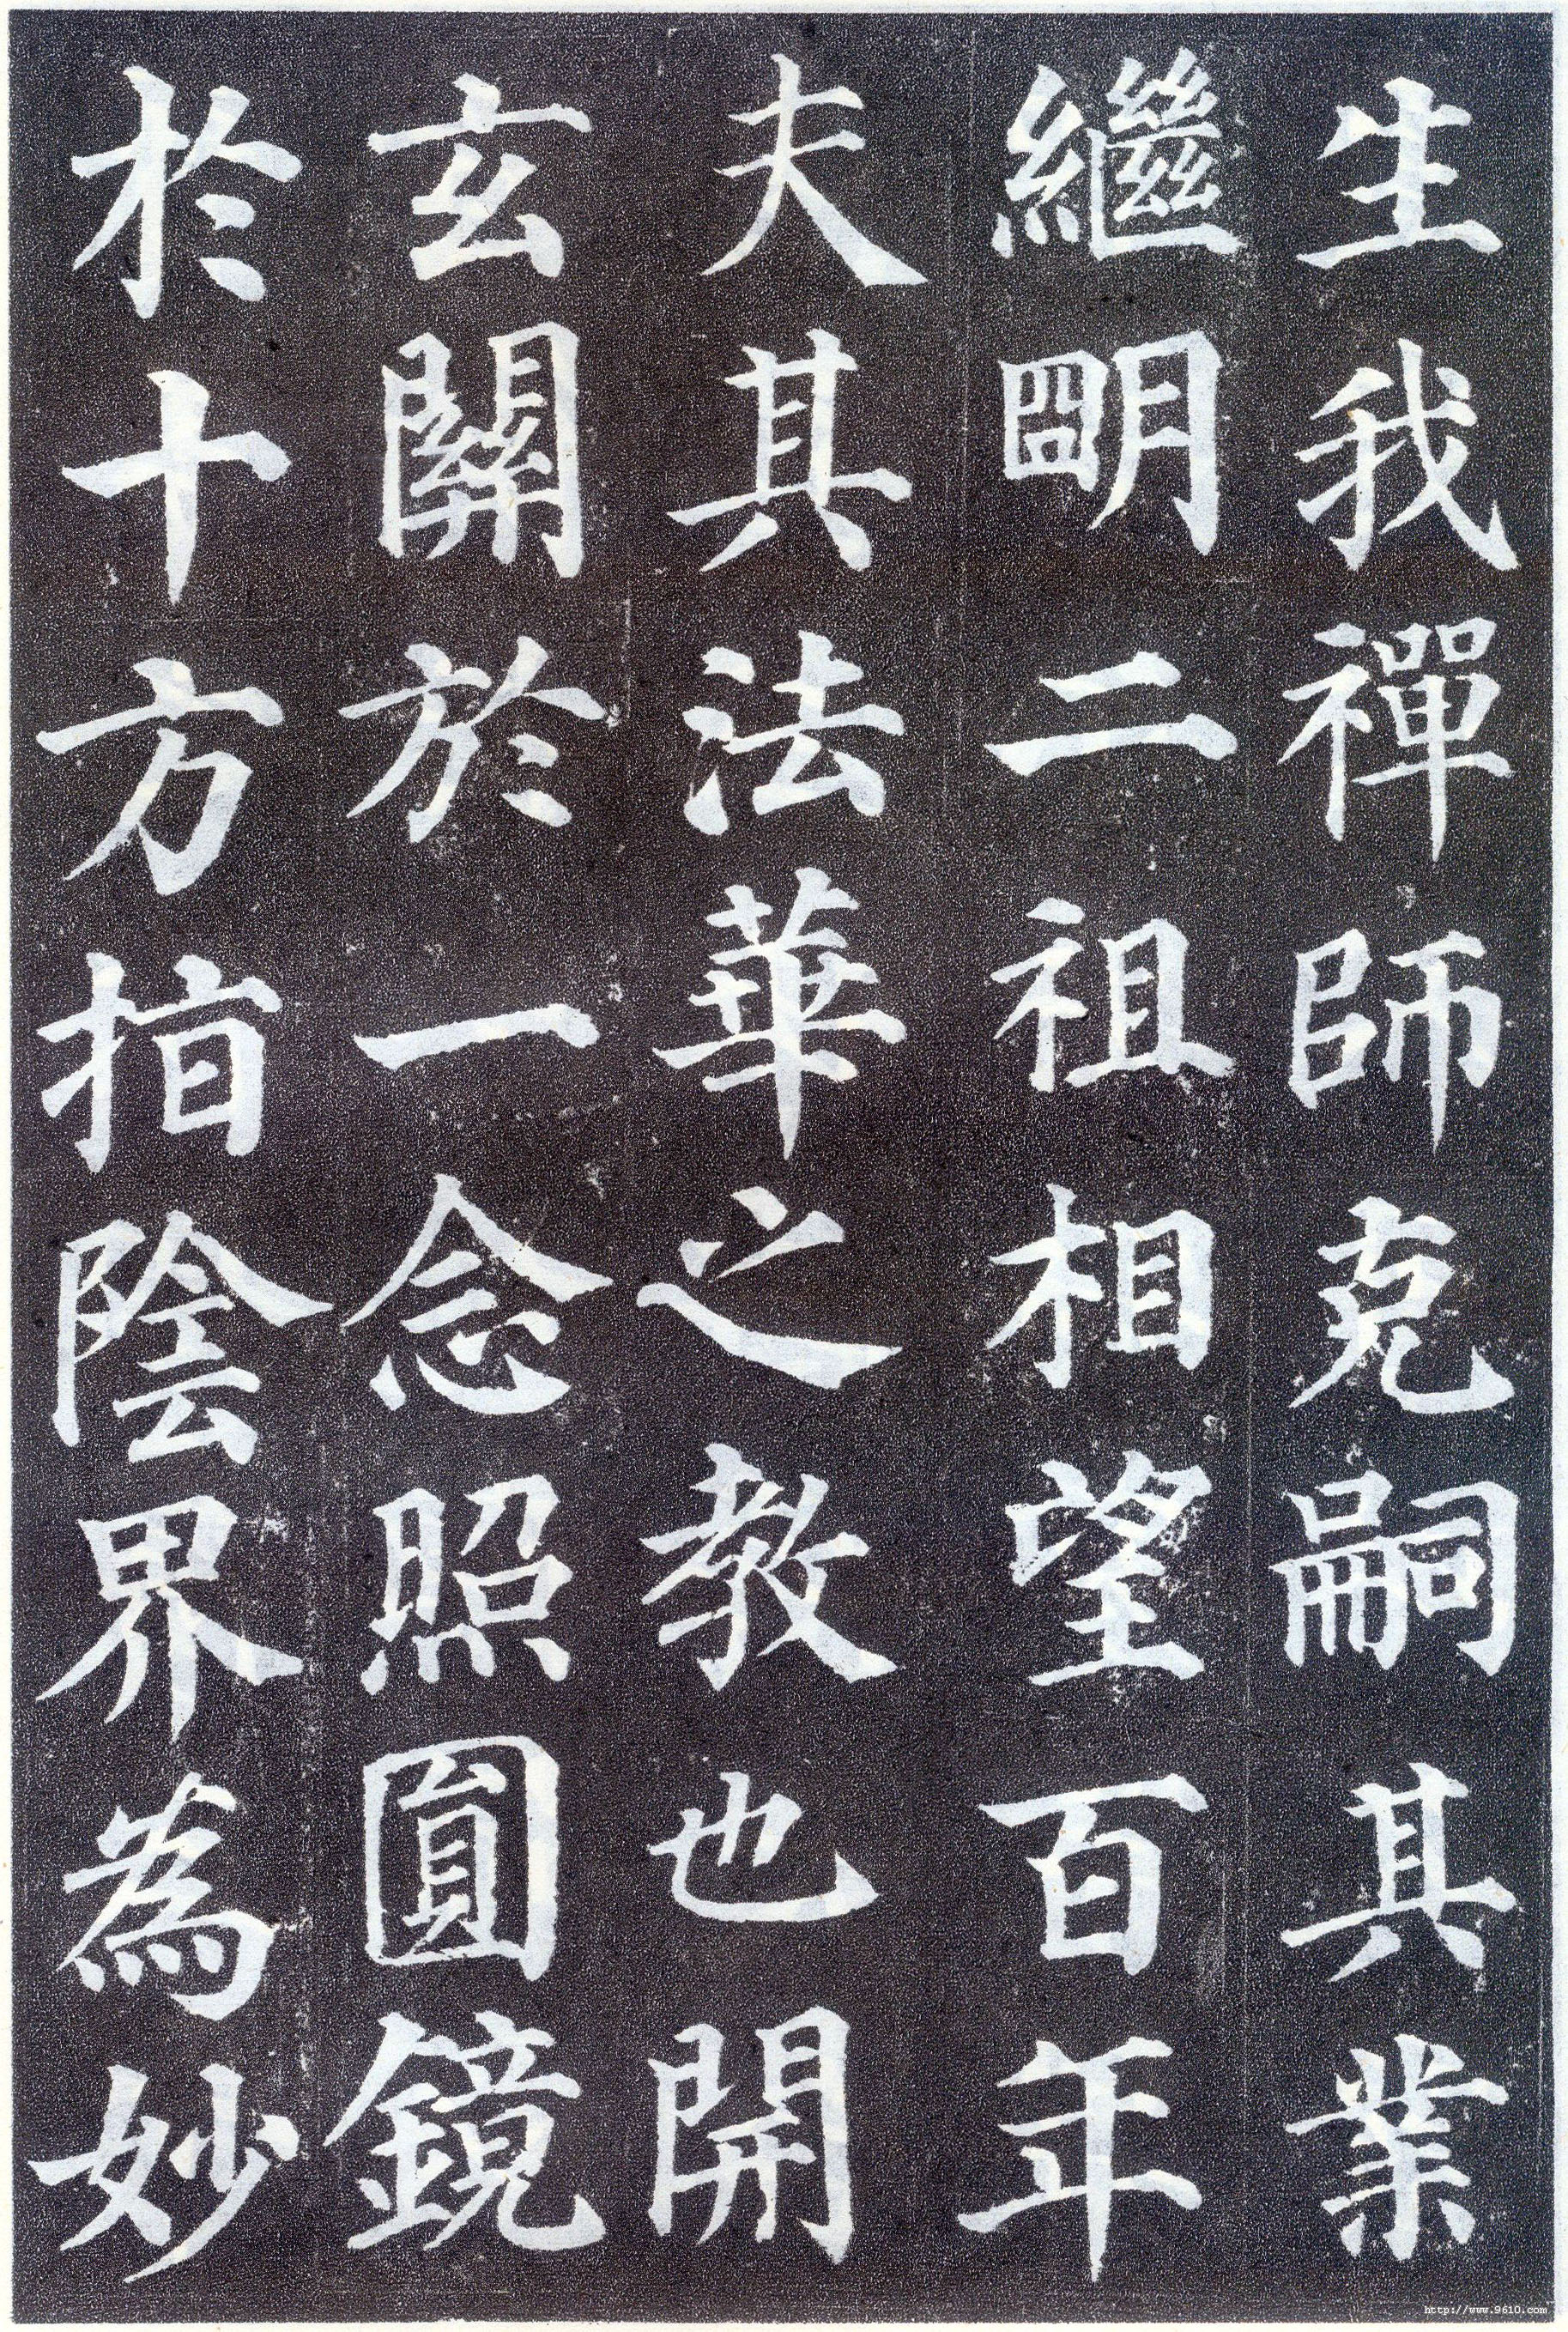 生我禪師克嗣其業
繼明二祖相望百年
夫其法華之教也開
玄關於一念照圓鏡
於十方指陰界為妙
http://www.9610.com